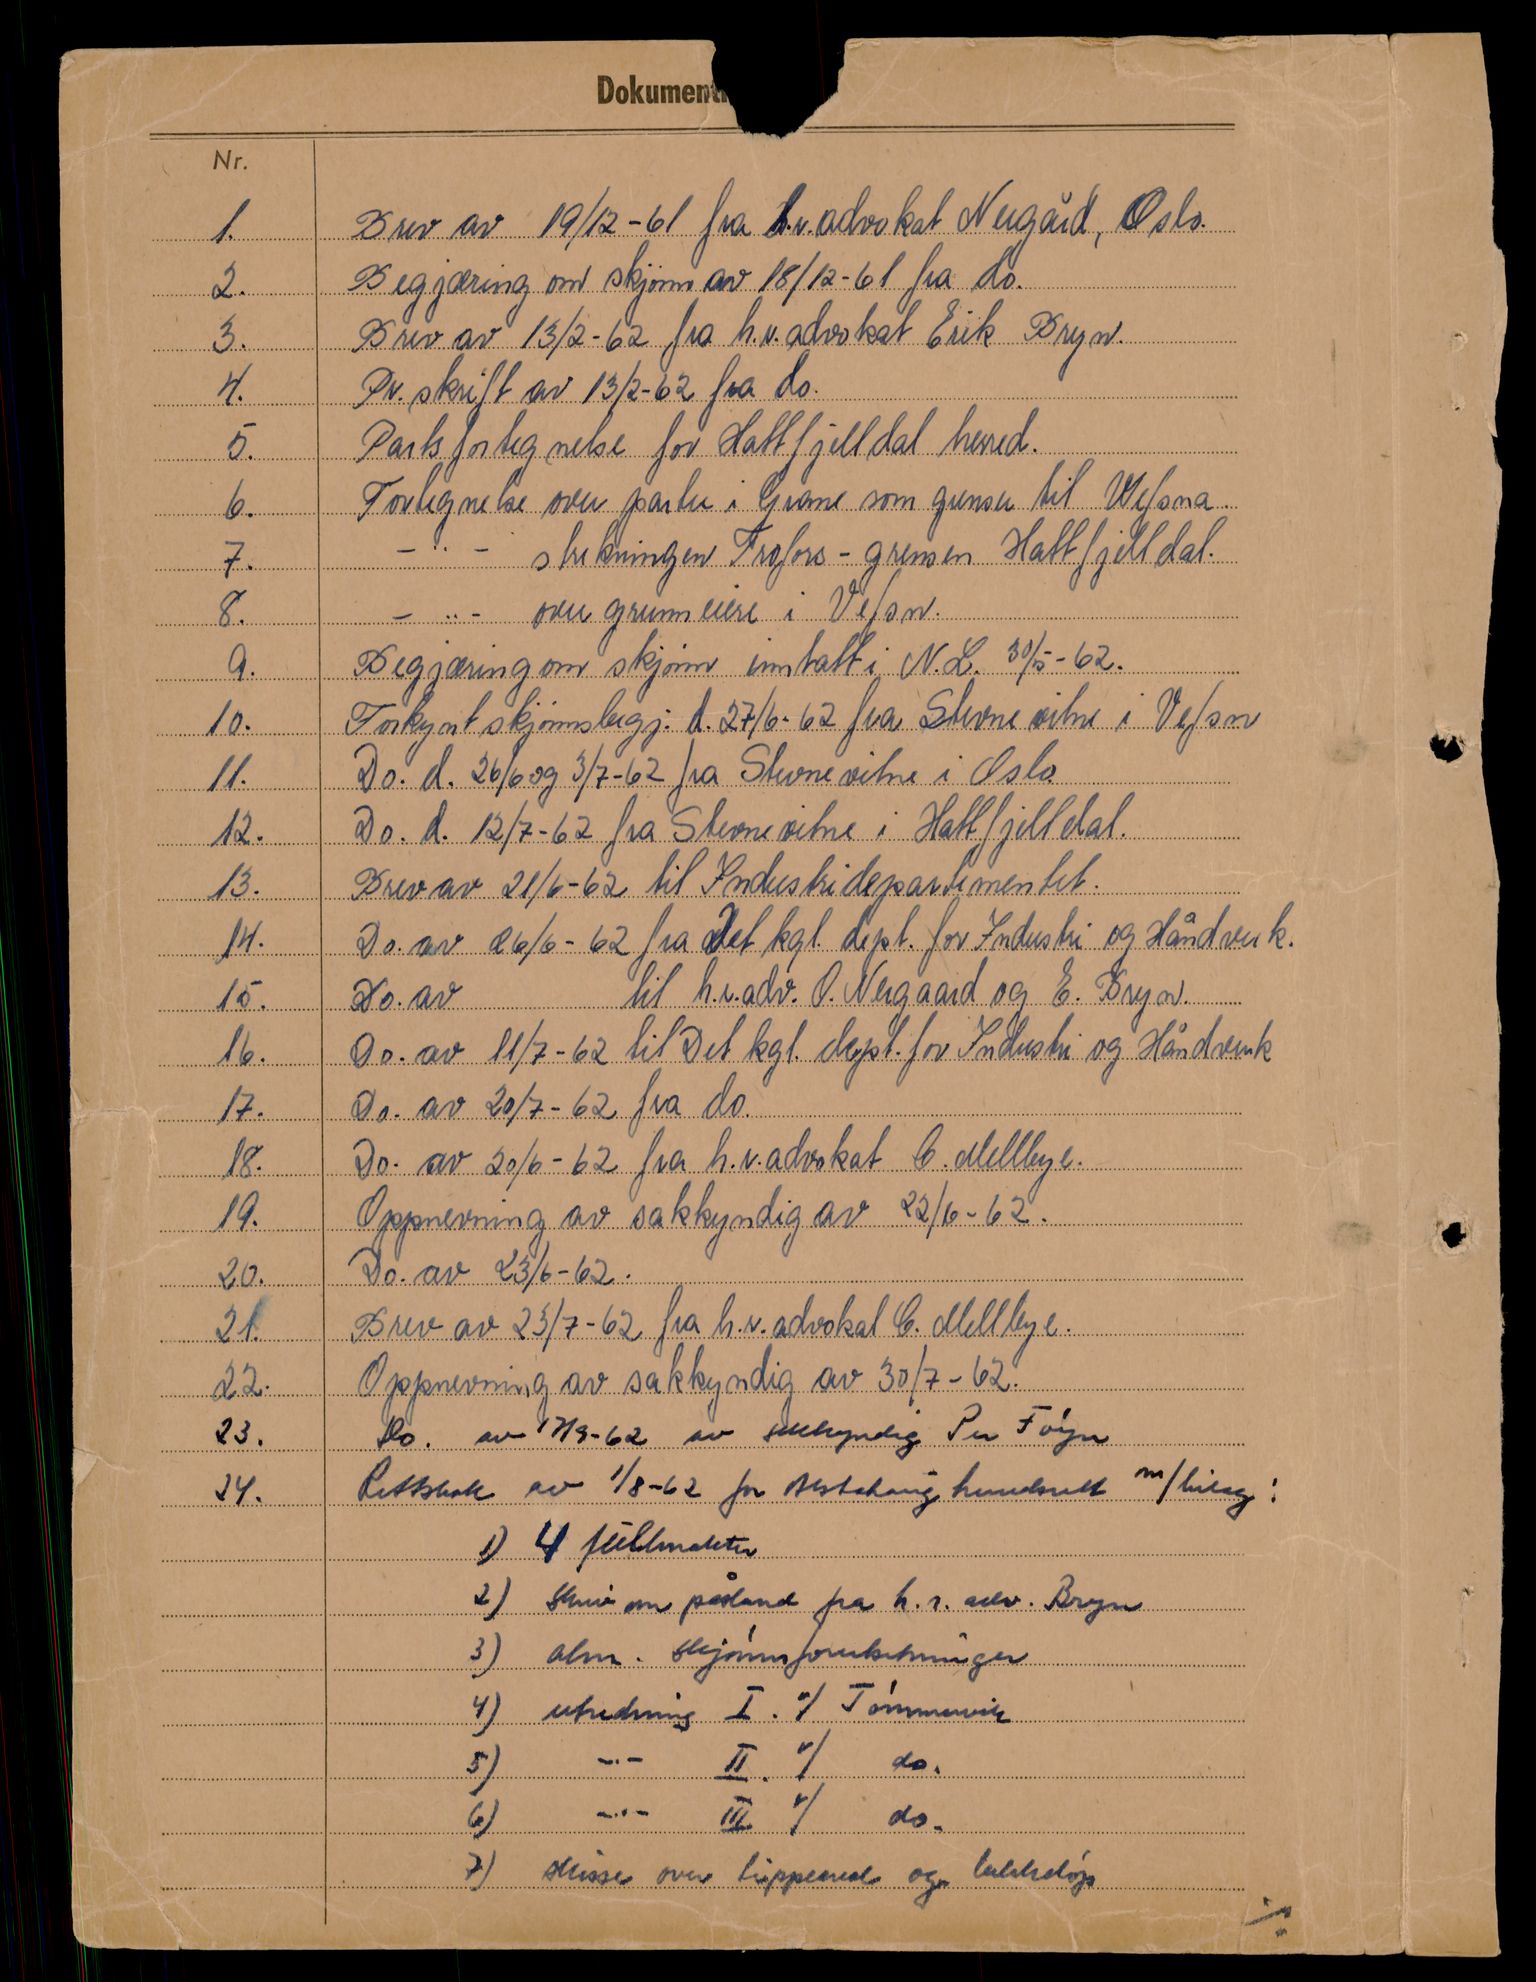 Dokument
Nr.
1. Brev av 19/12-61 fra h.r.advokat Nergård, Oslo.
2. Begjæring om skjønn av 18/12-61 fra do.
3. Brev av 13/2-62 fra h.r.advokat Erik Bryn.
4. Pr. skrift av 13/2-62 fra do.
5. Partsfortegnelse for Hattfjelldal herred.
6. Fortegnelse over parter i Grane som grenser til Vefsna.
7. - " - strekningen Trofors - grensen Hattfjelldal.
8. - " - over grunneiere i Vefsn.
9. Begjæring om skjønn inntatt i N.L. 30/5-62.
10. Forkynt skjønnsbegj. d. 27/6-62 fra Stevnevitne i Vefsn
11. Do. d. 26/6 og 3/7-62 fra Stevnevitne i Oslo
12. Do. d. 12/7-62 fra Stevnevitne i Hattfjelldal.
13. Brev av 21/6-62 til Industridepartementet.
14. Do. av 26/6-62 fra Det kgl. dept. for Industri og Håndverk.
15. Do. av til h.r.adv. O. Nergaard og E. Bryn.
16. Do. av 11/7-62 til Det kgl. dept. for Industri og Håndverk
17. Do. av 20/7-62 fra do.
18. Do. av 20/6-62 fra h.r.advokat C. Mellbye.
19. Oppnevning av sakkyndig av 22/6-62.
20. Do. av 23/6-62.
21. Brev av 23/7-62 fra h.r.advokat C. Mellbye.
22. Oppnevning av sakkyndig av 30/7-62.
23. Do. av 17/9-62 av sakkyndig Per Föyn
24. Rettsbok av 1/8-62 for Alstahaug herredsrett m/bilag:
1) 4 fullmakter
2) Skriv om påstand fra h.r. adv. Bryn
3) alm. skjønnsforutsetninger
4) utredning I. v/ Tömmervik
5) - " - II. v/ do.
6) - " - III v/ do.
7) skisse over tippeareal og
./.